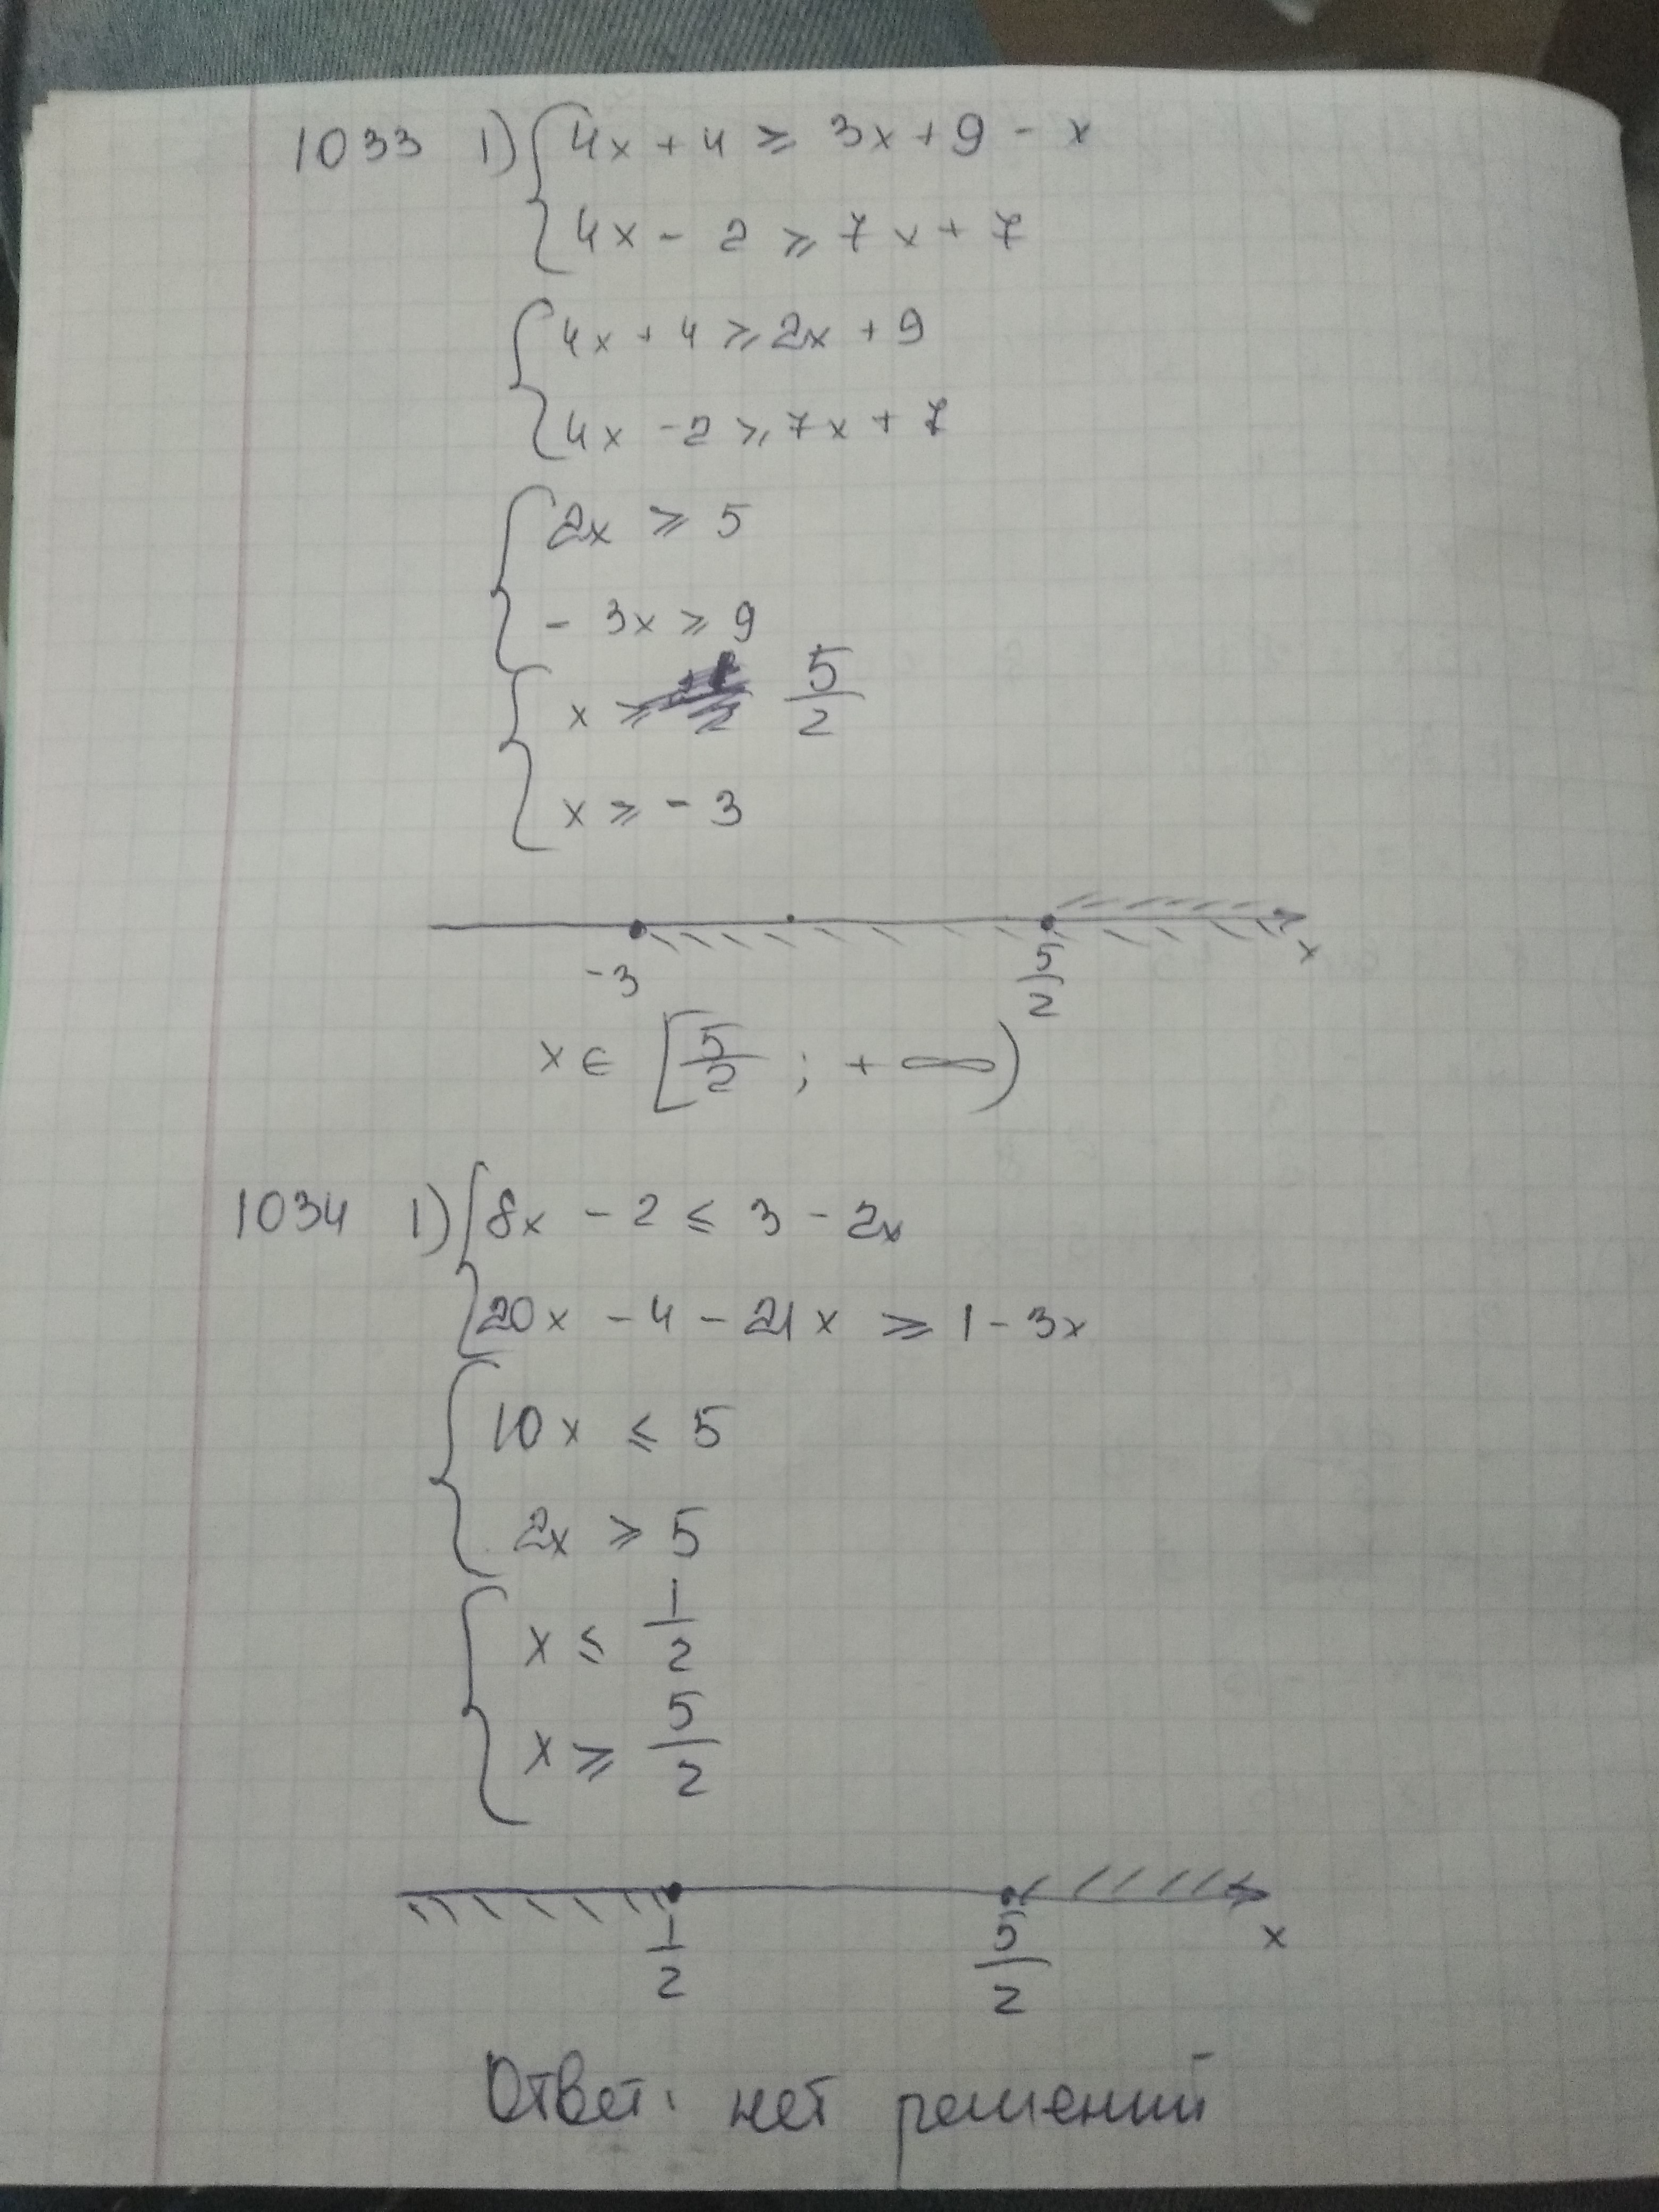 1033 1) { 4x + 4 ≥ 3x + 9 - x
4x - 2 ≥ 7x + 7
{ 4x + 4 ≥ 2x + 9
4x - 2 ≥ 7x + 7
{ 2x ≥ 5
- 3x ≥ 9
{ x ≥ 5/2
x ≥ - 3
-3 5/2 x
x ∈ [ 5/2 ; + ∞ )
1034 1) { 8x - 2 ≤ 3 - 2x
20x - 4 - 21x ≥ 1 - 3x
{ 10x ≤ 5
2x ≥ 5
{ x ≤ 1/2
x ≥ 5/2
1/2 5/2 x
Ответ: нет решений